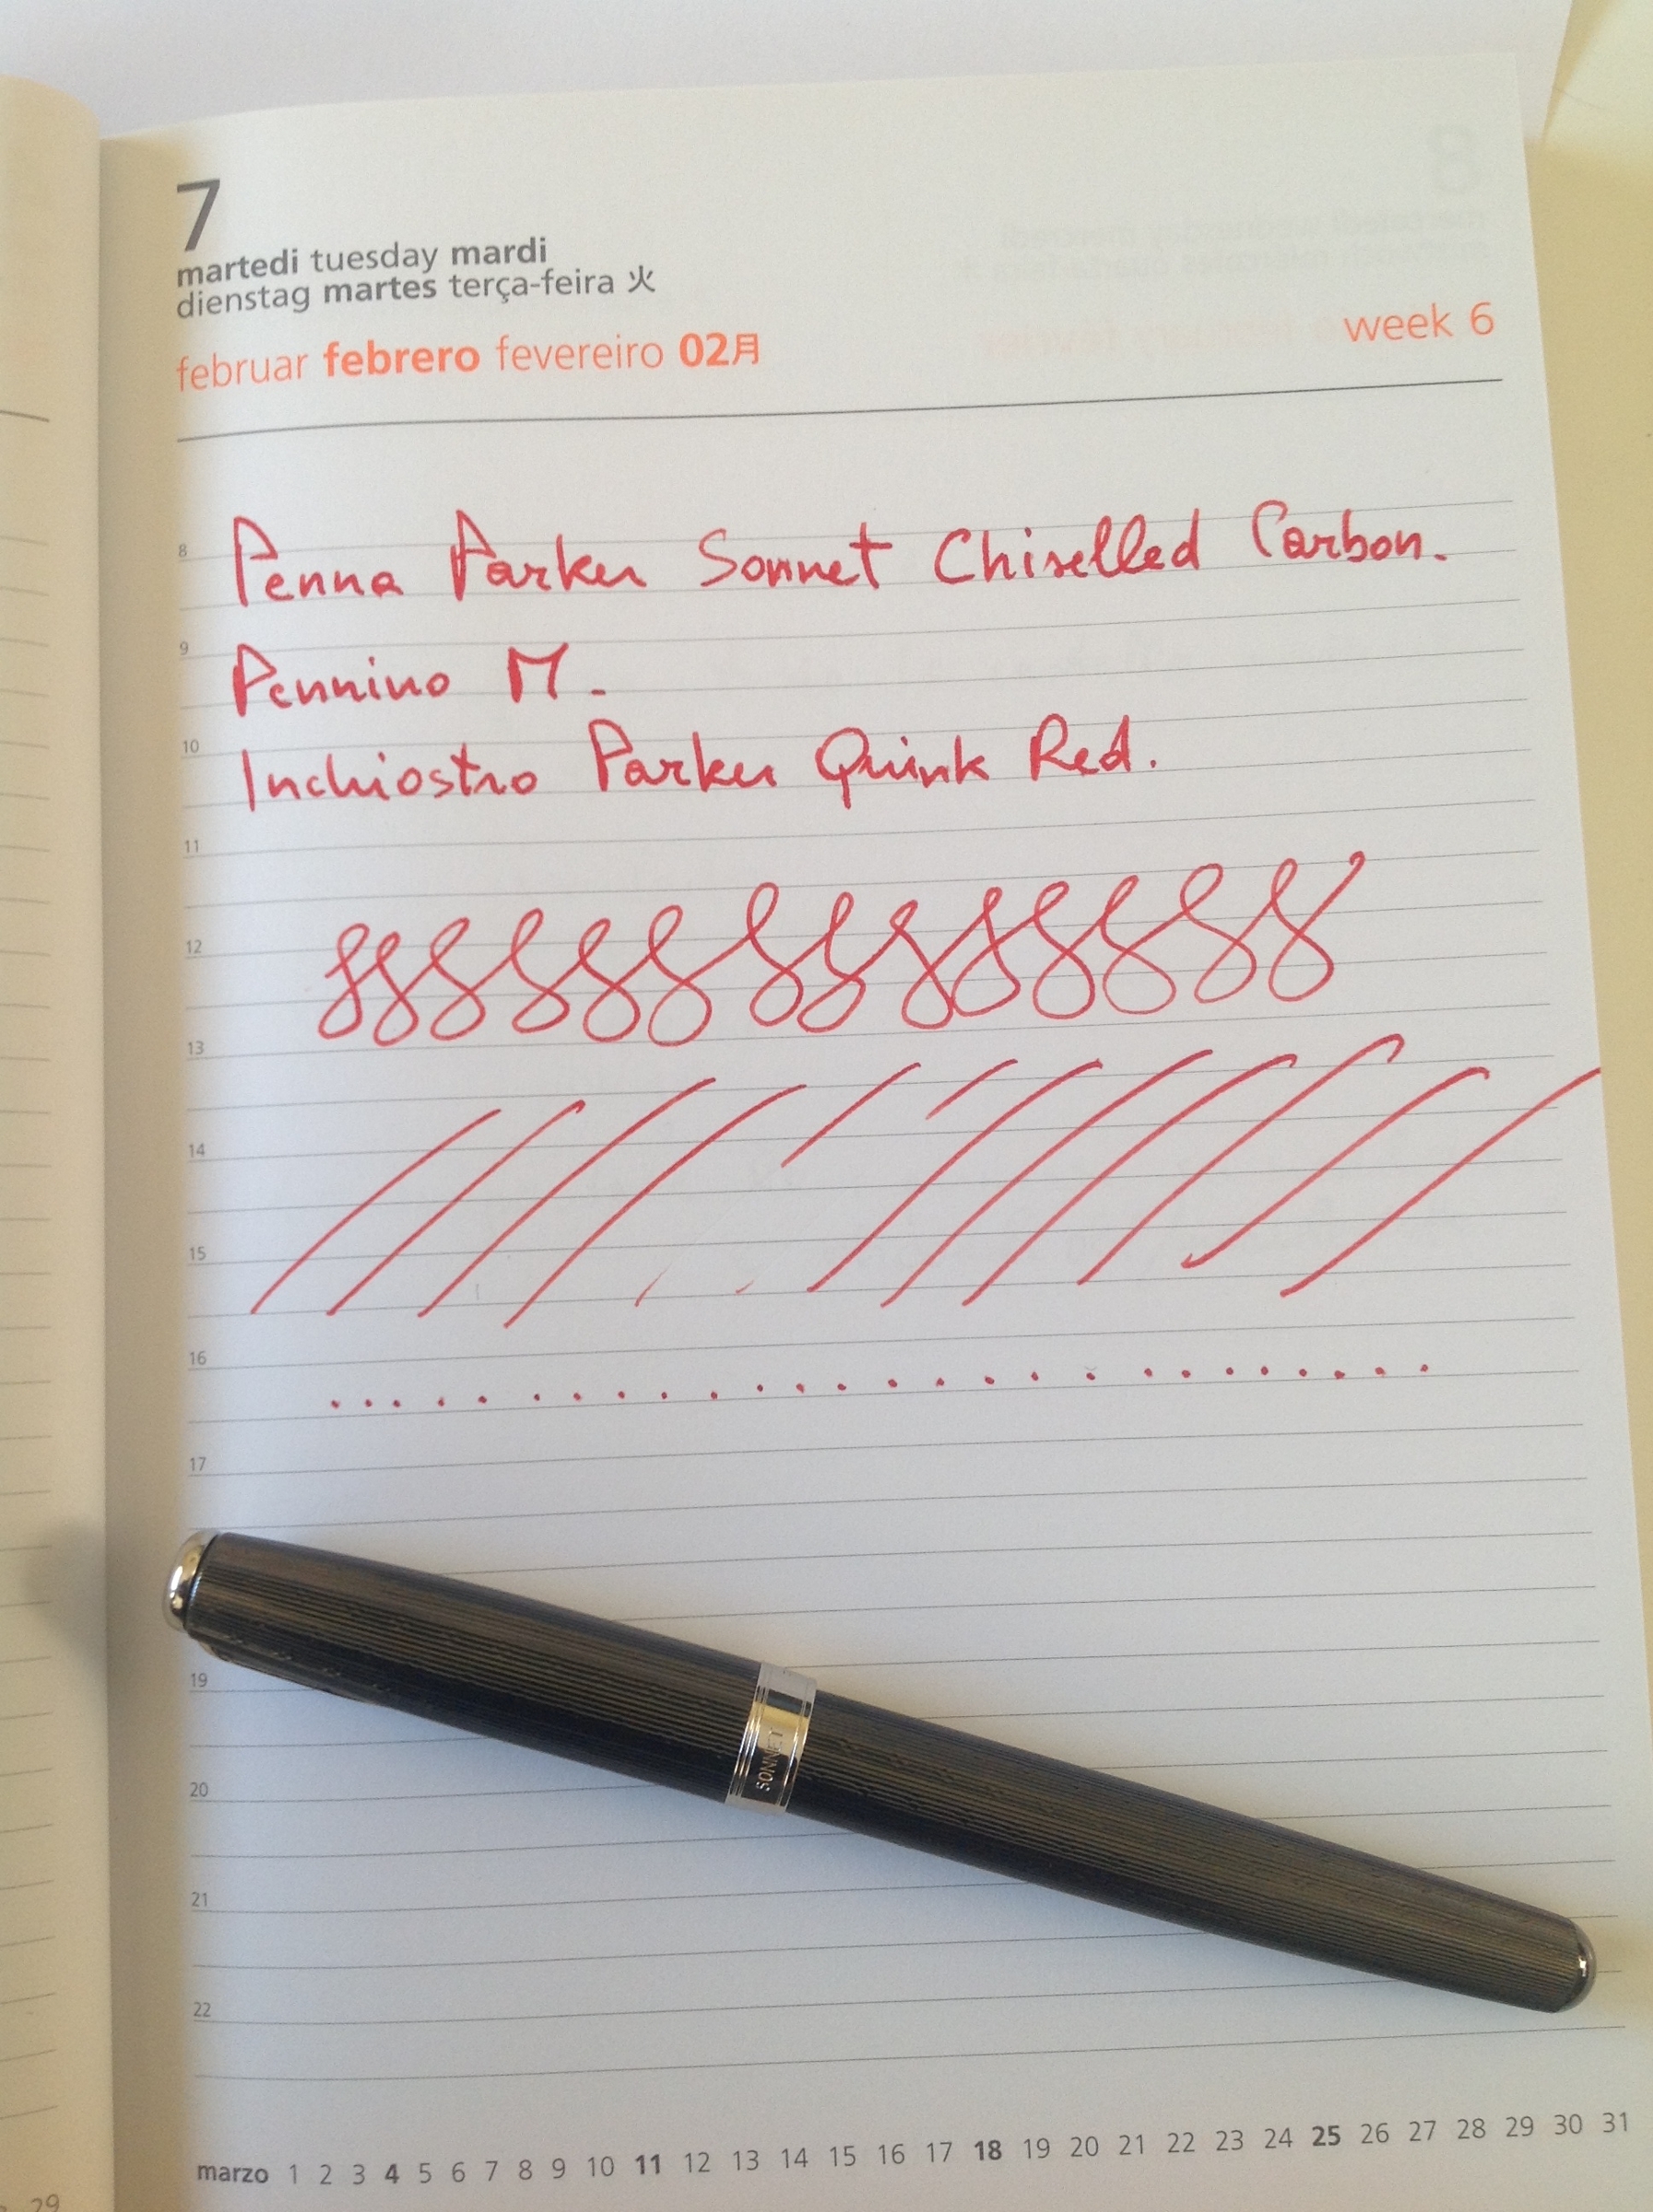 7
martedi tuesday mardi
dienstag martes terça-feira 火
februar febrero fevereiro 02月
week 6
8
Penna Parker Sonnet Chiselled Carbon.
9
Pennino M.
10
Inchiostro Parker Quink Red.
11
12
13
14
15
16
17
19
SONNET
20
21
22
marzo 1 2 3 4 5 6 7 8 9 10 11 12 13 14 15 16 17 18 19 20 21 22 23 24 25 26 27 28 29 30 31
29